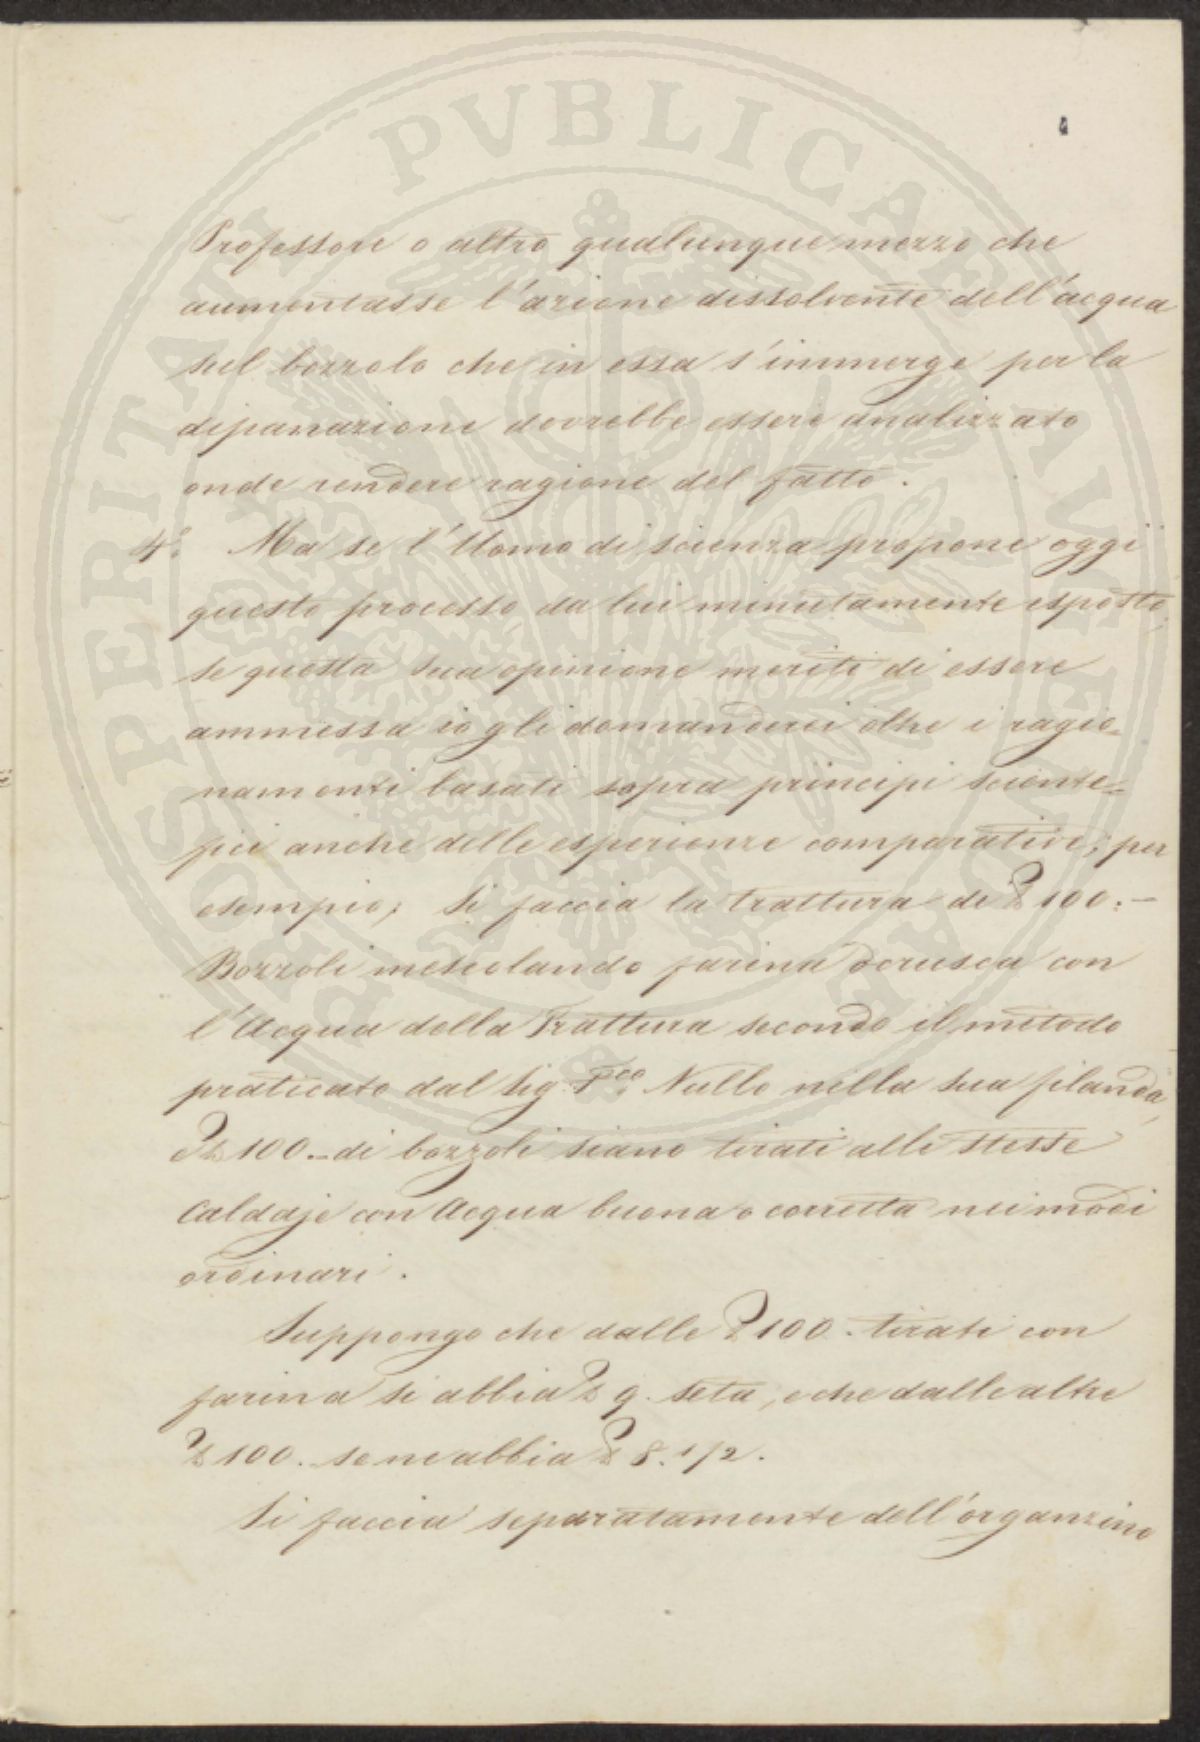 PROSPERITATI PVBLICAE AVGENDAE
Professore o altro qualunque mezzo che
aumentasse l'azione dissolvente dell'acqua
sul bozzolo che in essa s'immerge per la
dipanazione dovrebbe essere analizzato
onde rendere ragione del fatto.
4°. Ma se l'Uomo di scienza propone oggi
questo processo da lui minutamente esposto,
se questa sua opinione meriti di essere
ammessa io gli domanderei oltre i ragio=
namenti basati sopra principi scienti=
fici anche delle esperienze comparative; per
esempio; Si faccia la trattura di ℔ 100.-
Bozzoli mescolando farina o crusca con
l'Acqua della Trattura secondo il metodo
praticato dal Sig. Fco. Nullo nella sua filanda,
e ℔ 100.- di bozzoli siano tirati alle stesse
Caldaje con Acqua buona o corretta nei modi
ordinari.
Suppongo che dalle ℔ 100. tirati con
farina si abbia ℔ 9. seta, e che dalle altre
℔ 100. se ne abbia ℔ 8. 1/2.
Si faccia separatamente dell'organzino